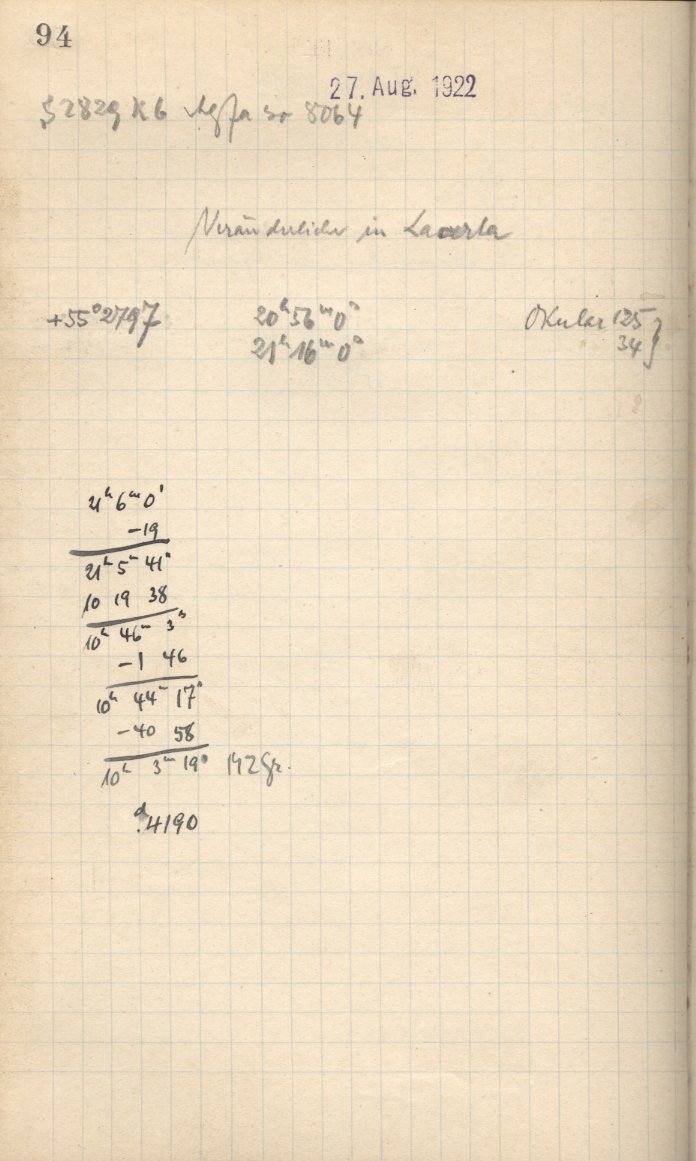 94
27. Aug. 1922
S 2829 K 6 Agfa 8064
Veränderliche in Lacerta
+55° 2797 20ʰ 56ᵐ 0ˢ Okular 125 }
21ʰ 16ᵐ 0ˢ 34
21ʰ 6ᵐ 0ˢ
-19
21ʰ 5ᵐ 41ˢ
10 19 38
10ʰ 46ᵐ 3ˢ
-1 46
10ʰ 44ᵐ 17ˢ
-40 58
10ʰ 3ᵐ 19ˢ M Z Gr.
ᵈ.4190